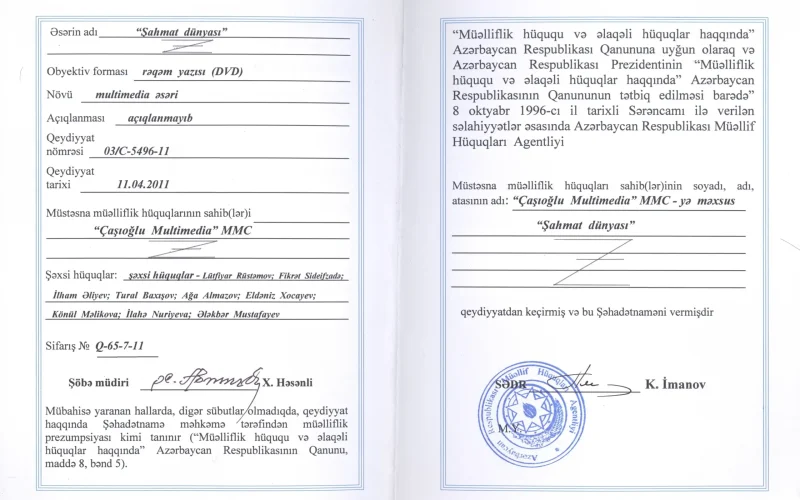 Əsərin adı "Şahmat dünyası"
Obyektiv forması rəqəm yazısı (DVD)
Növü multimedia əsəri
Açıqlanması açıqlanmayıb
Qeydiyyat
nömrəsi 03/C-5496-11
Qeydiyyat
tarixi 11.04.2011
Müstəsna müəlliflik hüquqlarının sahib(lər)i
"Çaşıoğlu Multimedia" MMC
Şəxsi hüquqlar: şəxsi hüquqlar - Lütfiyar Rüstəmov; Fikrət Sideifzadə;
İlham Əliyev; Tural Baxışov; Ağa Almazov; Eldəniz Xocayev;
Könül Məlikova; İlahə Nuriyeva; Ələkbər Mustafayev
Sifariş № Q-65-7-11
Şöbə müdiri X. Həsənli
Mübahisə yaranan hallarda, digər sübutlar olmadıqda, qeydiyyat
haqqında Şəhadətnamə məhkəmə tərəfindən müəlliflik
prezumpsiyası kimi tanınır ("Müəlliflik hüququ və əlaqəli
hüquqlar haqqında" Azərbaycan Respublikasının Qanunu,
maddə 8, bənd 5).
"Müəlliflik hüququ və əlaqəli hüquqlar haqqında"
Azərbaycan Respublikası Qanununa uyğun olaraq və
Azərbaycan Respublikası Prezidentinin "Müəlliflik
hüququ və əlaqəli hüquqlar haqqında" Azərbaycan
Respublikasının Qanununun tətbiq edilməsi barədə"
8 oktyabr 1996-cı il tarixli Sərəncamı ilə verilən
səlahiyyətlər əsasında Azərbaycan Respublikası Müəllif
Hüquqları Agentliyi
Müstəsna müəlliflik hüquqları sahib(lər)inin soyadı, adı,
atasının adı: "Çaşıoğlu Multimedia" MMC - yə məxsus
"Şahmat dünyası"
qeydiyyatdan keçirmiş və bu Şəhadətnaməni vermişdir
SƏDR K. İmanov
M.Y.
Azərbaycan Respublikası Müəllif Hüquqları Agentliyi